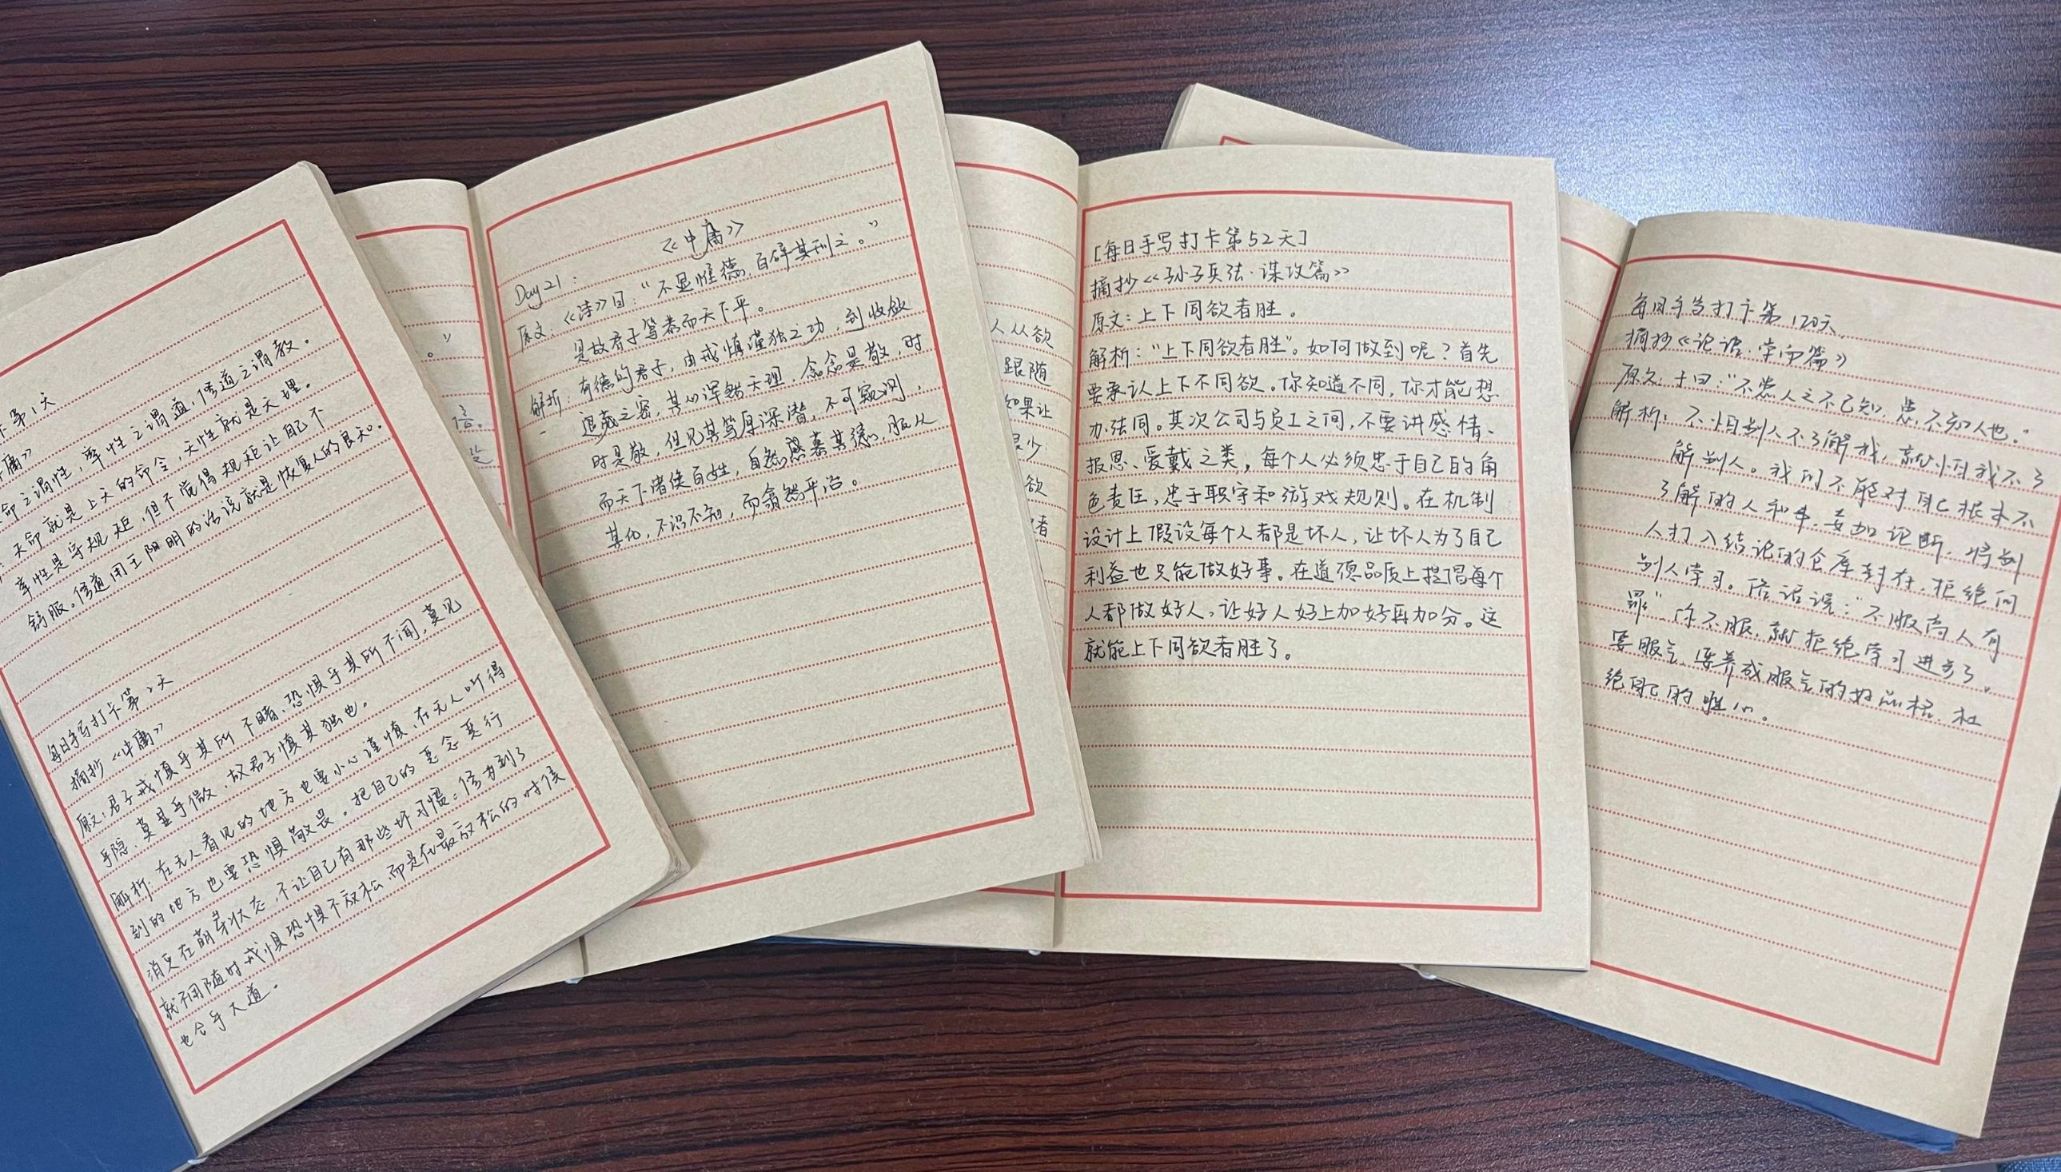 卡第1天
中庸》
命之谓性，率性之谓道，修道之谓教。
天命就是上天的命令，天性就是天理。
率性是守规矩，但不觉得规矩让自己不
舒服。修道用王阳明的话说就是恢复人的良知。
每日手写打卡第2天
摘抄《中庸》
原文：君子戒慎乎其所不睹，恐惧乎其所不闻，莫见
乎隐，莫显乎微，故君子慎其独也。
解析：在无人看见的地方也要小心谨慎，在无人听得
到的地方也要恐惧敬畏。把自己的恶念恶行
消灭在萌芽状态，不让自己有那些坏习惯。修为到了
就不用随时戒惧恐惧不放松，而是在最放松的时候
也合乎大道。
。”
《中庸》
Day21：
原文：《诗》曰：“不显惟德，百辟其刑之。”
是故君子笃恭而天下平。
解析：有德的君子，由戒慎谨独之功，到收敛
退藏之密，其心浑然天理，念念是敬，时
时是敬，但见其笃厚深潜，不可窥测，
而天下诸侯百姓，自然感慕其德，服从
其化，不识不知，而翕然平治。
人从欲
跟随
如果让
很少
欲
者
[每日手写打卡第52天]
摘抄《孙子兵法·谋攻篇》
原文：上下同欲者胜。
解析：“上下同欲者胜”。如何做到呢？首先
要承认上下不同欲。你知道不同，你才能想
办法同。其次公司与员工之间，不要讲感情、
报恩、爱戴之类，每个人必须忠于自己的角
色责任，忠于职守和游戏规则。在机制
设计上假设每个人都是坏人，让坏人为了自己
利益也只能做好事。在道德品质上提倡每个
人都做好人，让好人好上加好再加分。这
就能上下同欲者胜了。
每日手写打卡第120天
摘抄《论语·学而篇》
原文：子曰：“不患人之不己知，患不知人也。”
解析：不怕别人不了解我，就怕我不了
解别人。我们不能对自己根本不
了解的人和事，妄加论断，将别
人打入结论的仓库封存，拒绝向
别人学习。俗话说：“不服高人有
罪”你不服，就拒绝学习进步了。
要服气，培养成服气的好品格，杜
绝自己的胜心。